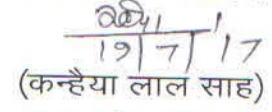 19/7/17
(कन्हैया लाल साह)